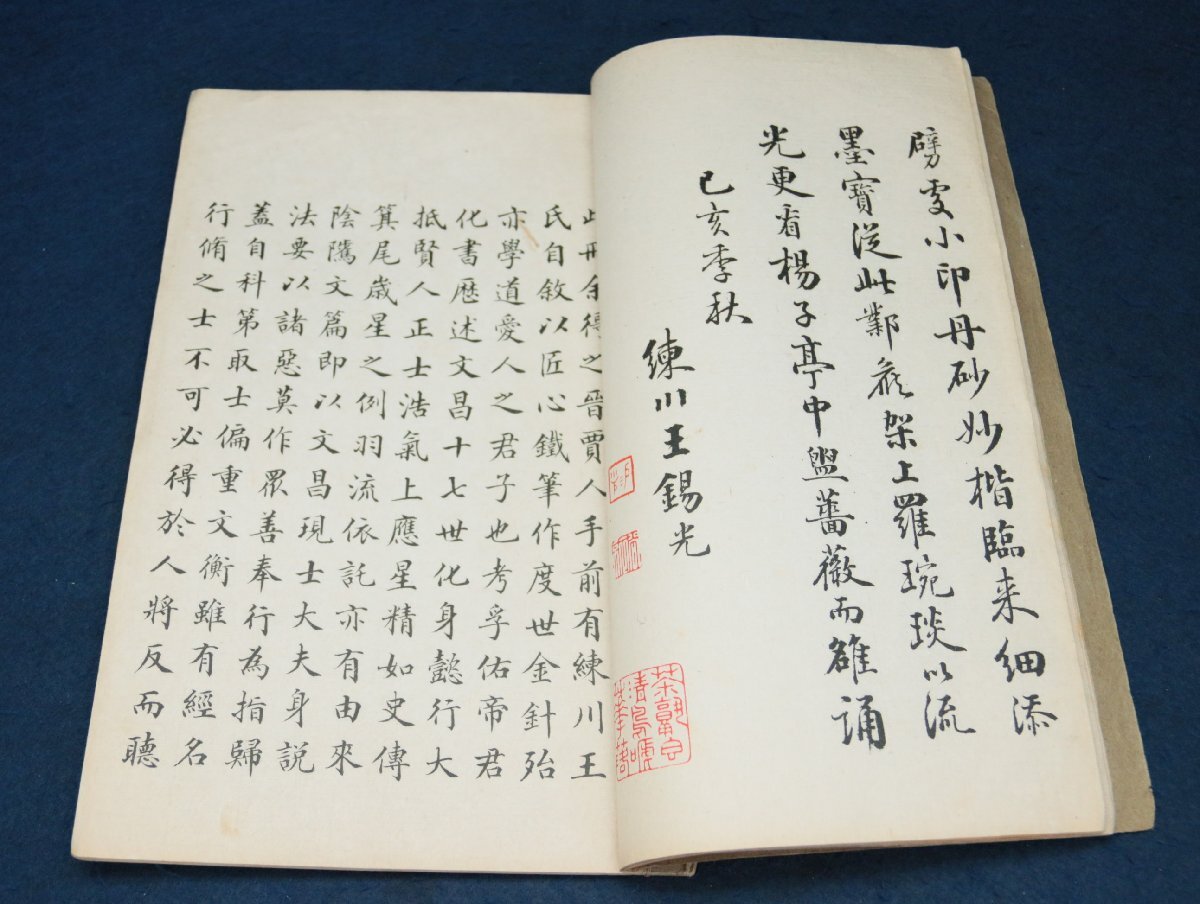 劈雯小印丹砂妙楷臨来細添
墨寶從此鄴籤架上羅琬琰以流
光更看楊子亭中盥薔薇而雒誦
己亥季秋
練川王錫光
此冊余得之晉賈人手前有練川王
氏自敘以匠心鐵筆作度世金針殆
亦學道愛人之君子也考孚佑帝君
化書歷述文昌十七世化身懿行大
抵賢人正士浩氣上應星精如史傳
箕尾歲星之例羽流依託亦有由來
陰隲文篇即以文昌現士大夫身説
法要以諸惡莫作眾善奉行為指歸
蓋自科第取士偏重文衡雖有經名
行脩之士不可必得於人將反而聽